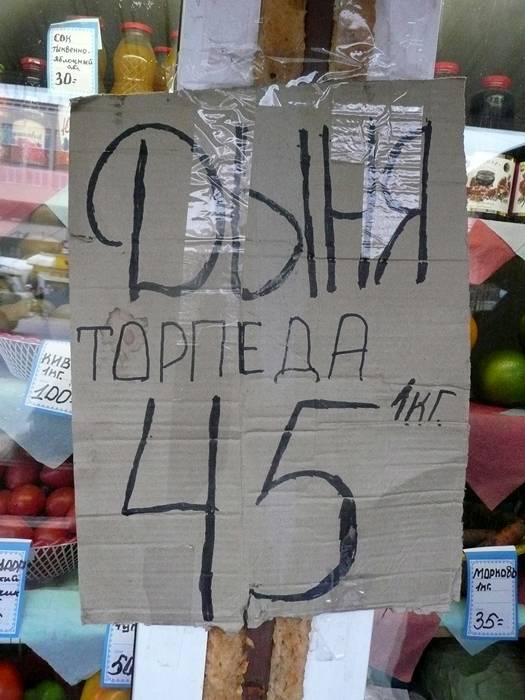 СОК
тыквенно-
яблочный
30=
ДЫНЯ
ТОРПЕДА
45
1КГ
КИВ
1КГ.
100
МОРКОВЬ
1КГ.
35=
50